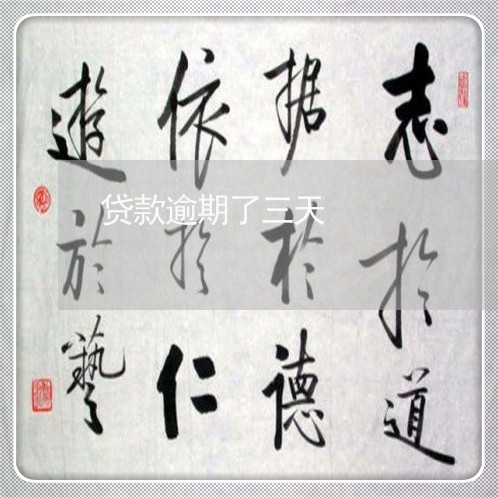 志於道
据於德
依於仁
遊於藝
贷款逾期了三天